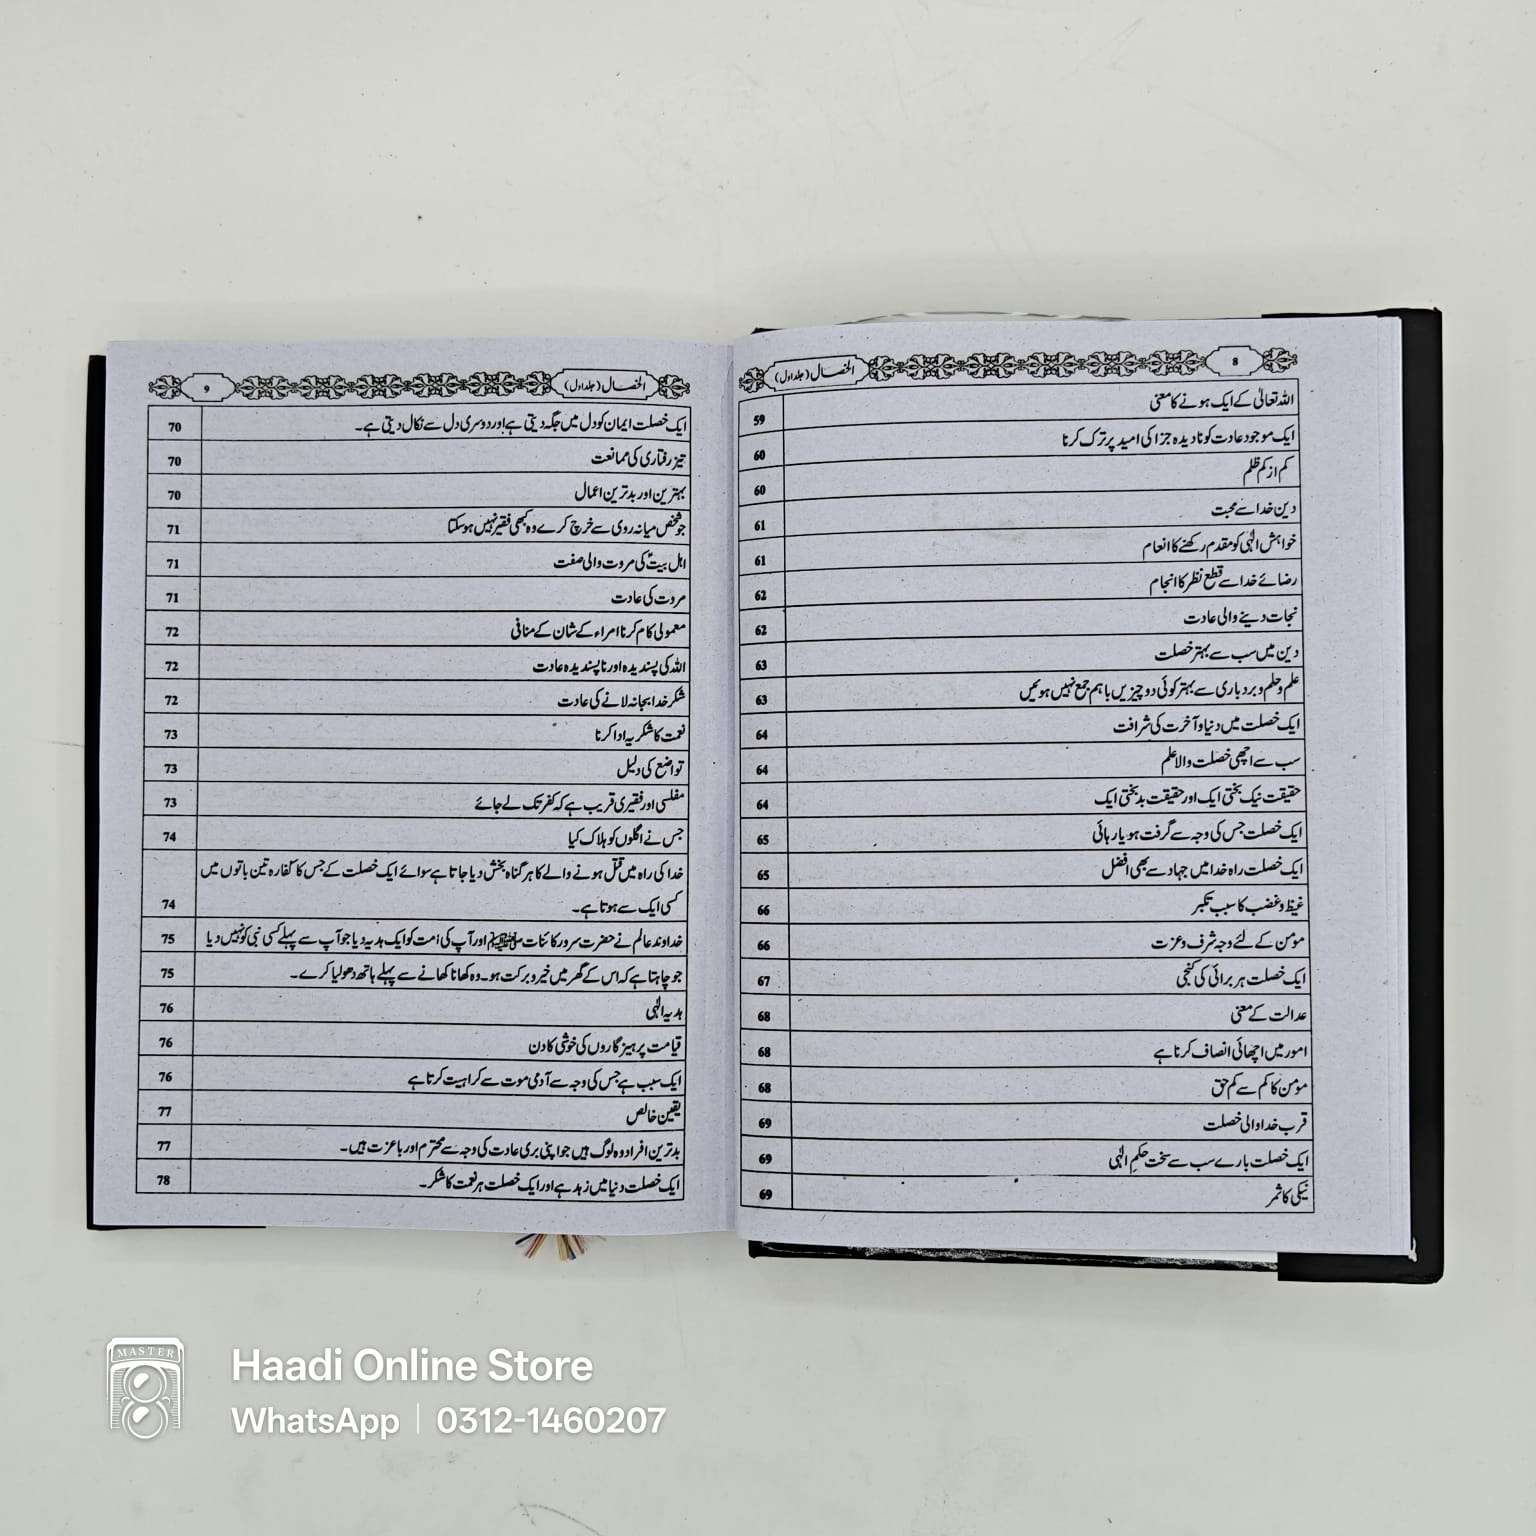 8
الخصال (جلد اول)
اللہ تعالیٰ کے ایک ہونے کا معنی 59
ایک موجود عادت کو نادیدہ جزا کی امید پر ترک کرنا 60
کم از کم ظلم 60
دین خدا سے محبت 61
خواہش الٰہی کو مقدم رکھنے کا انعام 61
رضائے خدا سے قطع نظر کا انجام 62
نجات دینے والی عادت 62
دین میں سب سے بہتر خصلت 63
علم و حلم و بردباری سے بہتر کوئی دو چیزیں باہم جمع نہیں ہوئیں 63
ایک خصلت میں دنیا و آخرت کی شرافت 64
سب سے اچھی خصلت والا علم 64
حقیقت نیک بختی ایک اور حقیقت بد بختی ایک 64
ایک خصلت جس کی وجہ سے گرفت ہو یا رہائی 65
ایک خصلت راہ خدا میں جہاد سے بھی افضل 65
غیظ و غضب کا سبب تکبر 66
مومن کے لئے وجہ شرف و عزت 66
ایک خصلت ہر برائی کی کنجی 67
عدالت کے معنی 68
امور میں اچھائی انصاف کرنا ہے 68
مومن کا کم سے کم حق 68
قرب خدا والی خصلت 69
ایک خصلت بارے سب سے سخت حکمِ الٰہی 69
نیکی کا ثمر 69
الخصال (جلد اول)
9
ایک خصلت ایمان کو دل میں جگہ دیتی ہے اور دوسری دل سے نکال دیتی ہے۔ 70
تیز رفتاری کی ممانعت 70
بہترین اور بدترین اعمال 70
جو شخص میانہ روی سے خرچ کرے وہ کبھی فقیر نہیں ہو سکتا 71
اہل بیتؑ کی مروت والی صفت 71
مروت کی عادت 71
معمولی کام کرنا امراء کے شان کے منافی 72
اللہ کی پسندیدہ اور ناپسندیدہ عادت 72
شکر خدا بجا نہ لانے کی عادت 72
نعمت کا شکریہ ادا کرنا 73
تواضع کی دلیل 73
مفلسی اور فقیری قریب ہے کہ کفر تک لے جائے 73
جس نے اگلوں کو ہلاک کیا 74
خدا کی راہ میں قتل ہونے والے کا ہر گناہ بخش دیا جاتا ہے سوائے ایک خصلت کے جس کا کفارہ تین باتوں میں
کسی ایک سے ہوتا ہے۔ 74
خداوند عالم نے حضرت سرور کائنات ﷺ اور آپ کی امت کو ایک ہدیہ دیا جو آپ سے پہلے کسی نبی کو نہیں دیا 75
جو چاہتا ہے کہ اس کے گھر میں خیر و برکت ہو۔ وہ کھانا کھانے سے پہلے ہاتھ دھو لیا کرے۔ 75
ہدیہ الٰہی 76
قیامت پرہیز گاروں کی خوشی کا دن 76
ایک سبب ہے جس کی وجہ سے آدمی موت سے کراہیت کرتا ہے 76
یقین خالص 77
بدترین افراد وہ لوگ ہیں جو اپنی بری عادت کی وجہ سے محترم اور باعزت ہیں۔ 77
ایک خصلت دنیا میں زہد ہے اور ایک خصلت ہر نعمت کا شکر۔ 78
MASTER
Haadi Online Store
WhatsApp | 0312-1460207